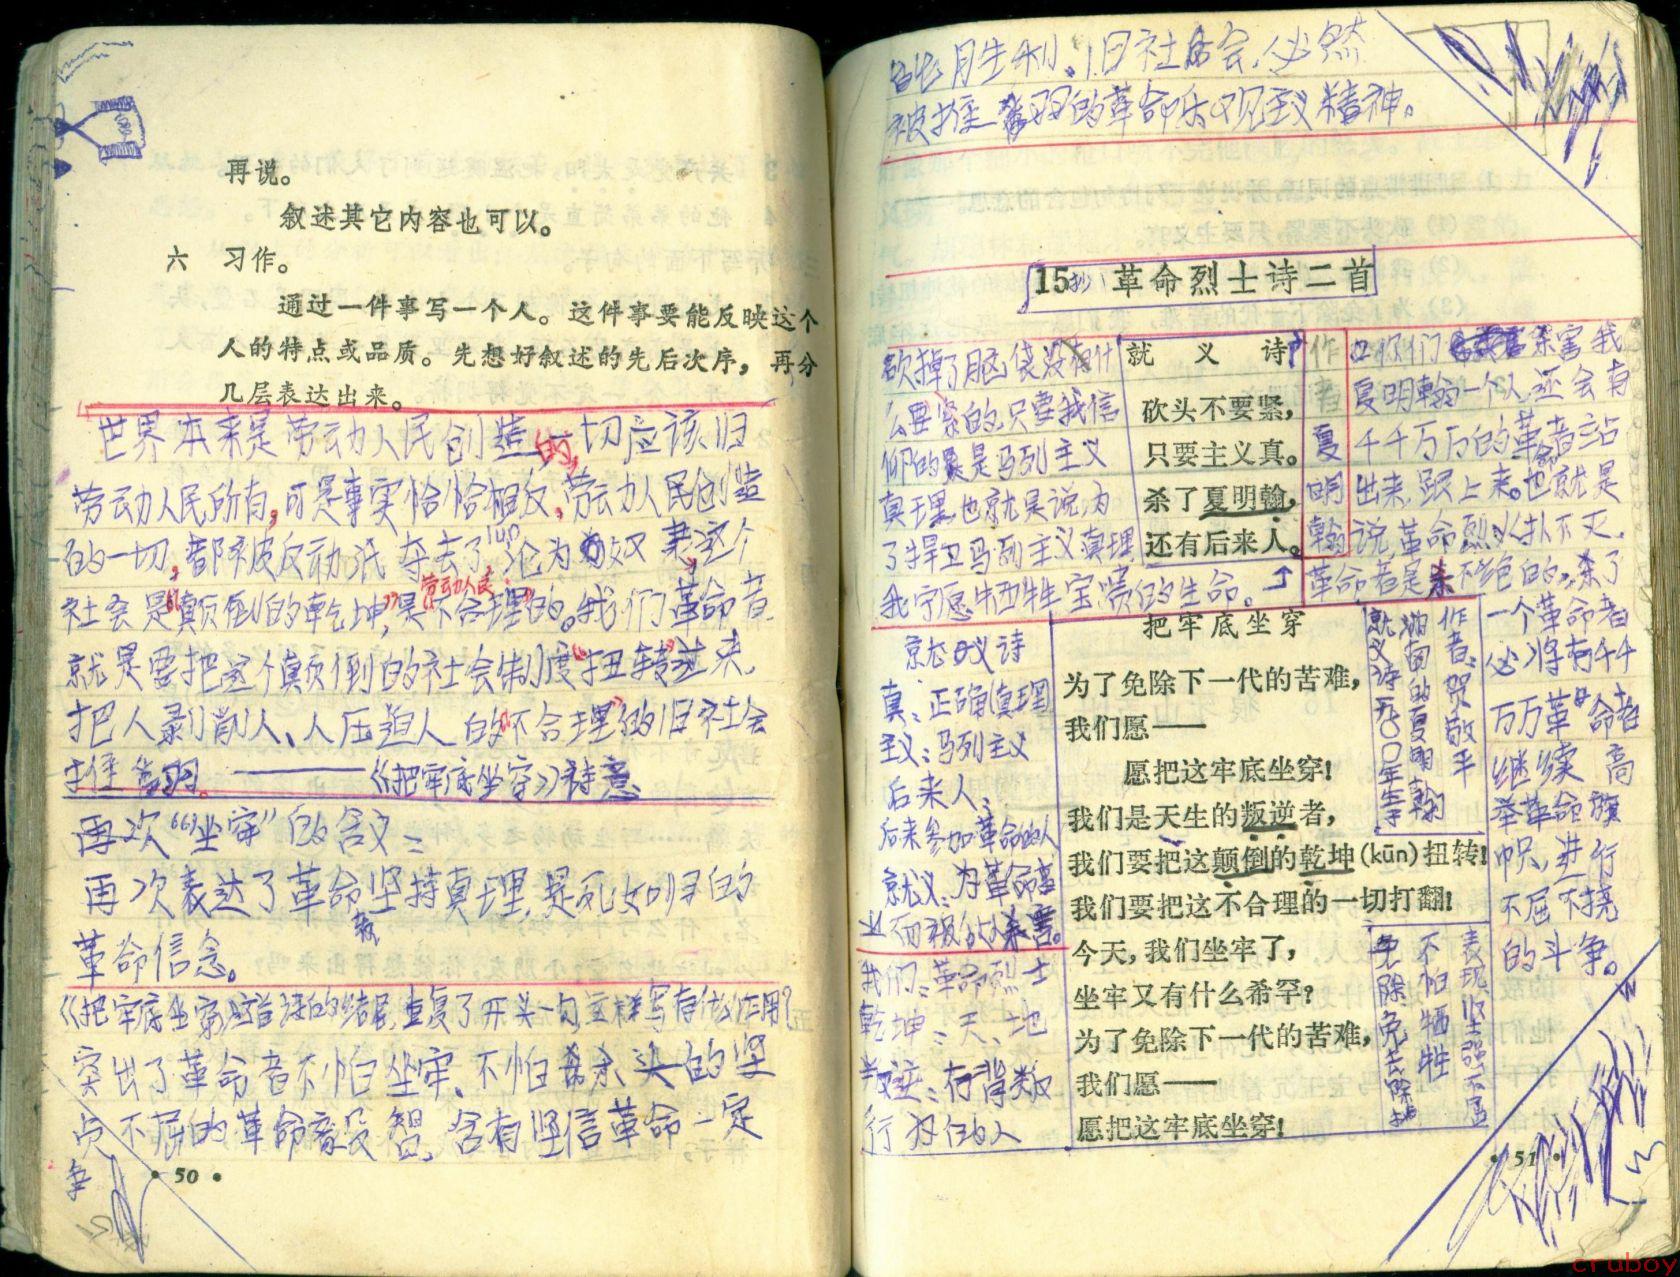 再说。
叙述其它内容也可以。
六 习作。
通过一件事写一个人。这件事要能反映这个
人的特点或品质。先想好叙述的先后次序，再分
几层表达出来。
世界本来是劳动人民创造的，一切应该归
劳动人民所有，可是事实恰恰相反，劳动人民创造
的一切，都被反动派夺去了，沦为奴隶，这个
社会是“颠倒的乾坤”，是不合理的。我们革命者
劳动人民
就是要把这个颠倒的社会制度“扭转”过来，
把人剥削人、人压迫人的“不合理”的旧社会
《把牢底坐穿》诗意
再次“坐牢”的含义：
再次表达了革命坚持真理，是死如归的
革命信念。
《把牢底坐穿》这首诗的结尾，重复了开头一句，这样写有什么作用？
突出了革命者不怕坐牢、不怕杀头的坚
不屈的革命意 含有坚信革命一定
• 50 •
胜利。旧社会必然
被 的革命乐观主义精神。
15 革命烈士诗二首
就义诗
砍头不要紧，
只要主义真。
杀了夏明翰，
还有后来人。
作者 夏明翰
砍掉了脑袋没有什
么要紧的，只要我信
仰的是马列主义
真理，也就是说，为
了捍卫马列主义真理
我宁愿牺牲宝贵的生命。
你们杀害我
夏明翰一个人，还会有
千千万万的革命者站
出来，跟上来。也就是
说，革命烈火扑不灭，
革命者是杀不绝的，杀了
一个革命者
必将有千千
万万革命者
继续高
举革命旗
帜，进行
不屈不挠
的斗争。
就义诗
真：正确(真理
主义：马列主义
后来人：
后来参加革命的人
就义：为革命事
业而被敌人杀害。
我们：革命烈士
乾坤：天、地
叛逆：有背叛
行为的人
把牢底坐穿
为了免除下一代的苦难，
我们愿——
愿把这牢底坐穿！
我们是天生的叛逆者，
我们要把这颠倒的乾坤(kūn)扭转！
我们要把这不合理的一切打翻！
今天，我们坐牢了，
坐牢又有什么希罕？
为了免除下一代的苦难，
我们愿——
愿把这牢底坐穿！
作者：贺敬平
湖南的夏明翰
不怕牺牲
免除：免去、除掉
• 51 •
cruboy